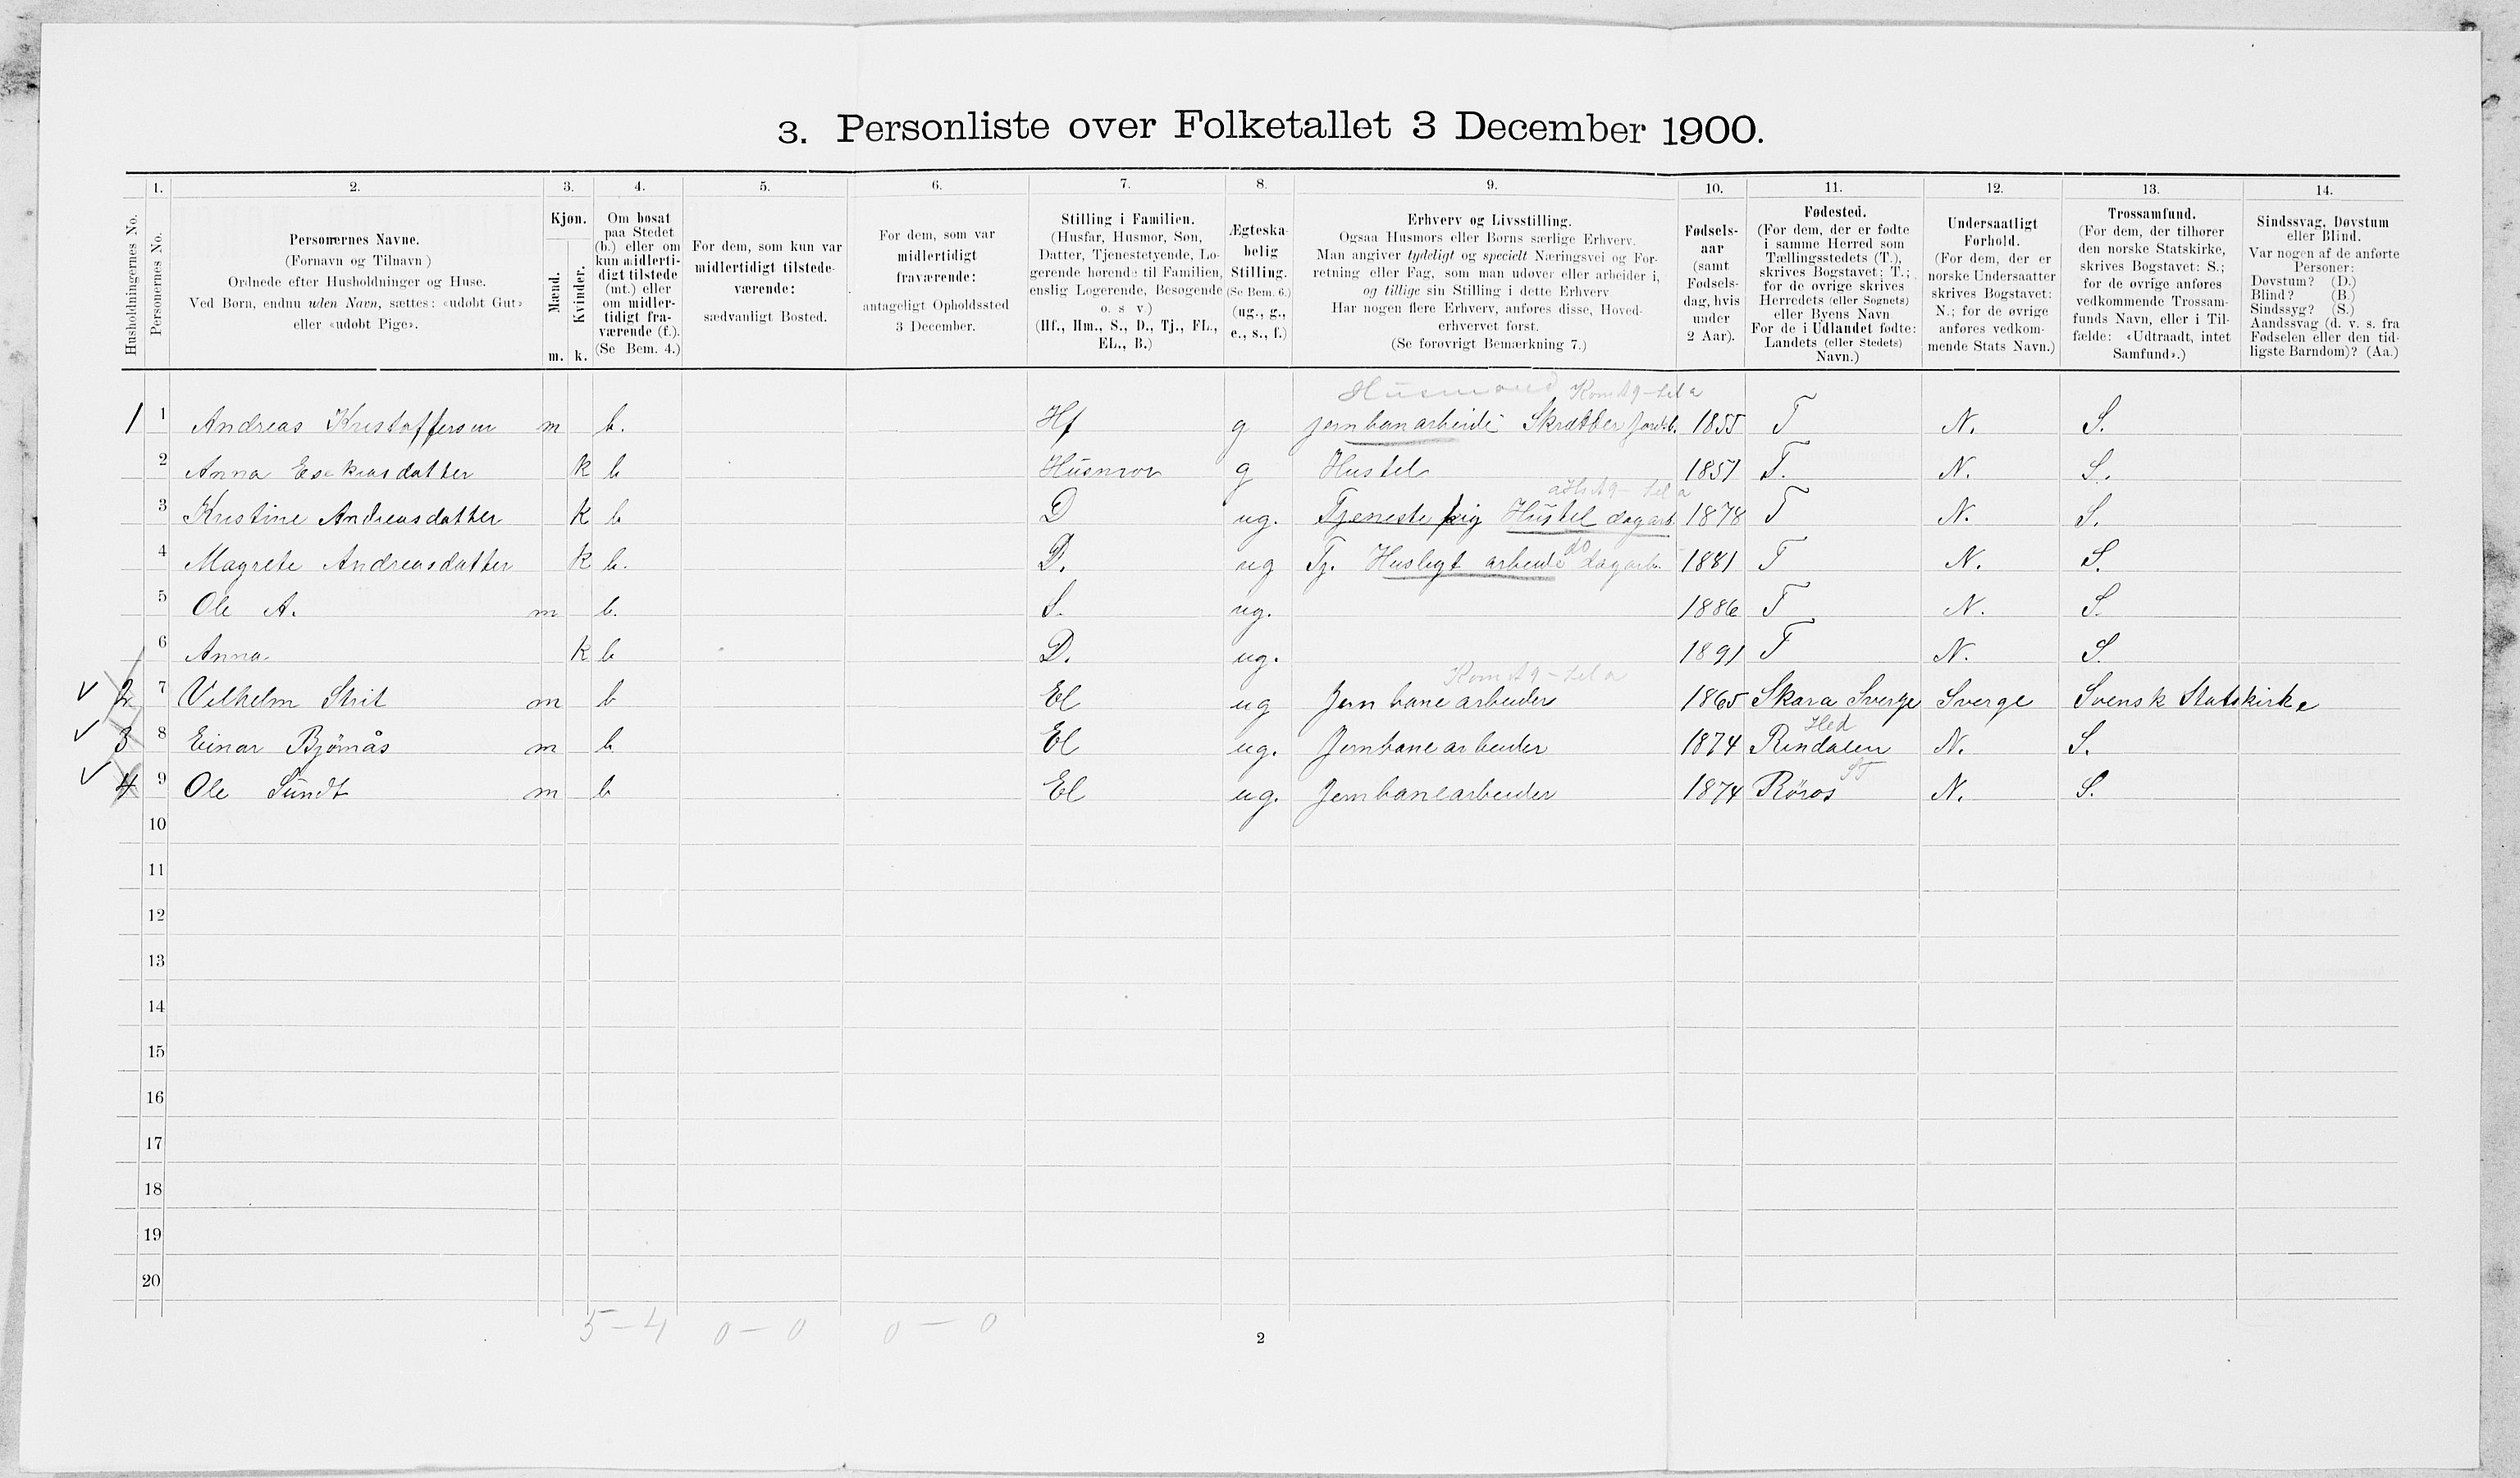 3. Personliste over Folketallet 3 December 1900.
1. 2. 3. 4. 5. 6. 7. 8. 9. 10. 11. 12. 13. 14.
Husholdningernes No.
Personernes No.
Personernes Navne.
(Fornavn og Tilnavn)
Ordnede efter Husholdninger og Huse.
Ved Børn, endnu uden Navn, sættes: «udøbt Gut»
eller «udøbt Pige».
Kjøn.
Mænd.
Kvinder.
m. k.
Om bosat
paa Stedet
(b.) eller om
kun midlerti-
digt tilstede
(mt.) eller
om midler-
tidigt fra-
værende (f.).
(Se Bem. 4.)
For dem, som kun var
midlertidigt tilstede-
værende:
sædvanligt Bosted.
For dem, som var
midlertidigt
fraværende:
antageligt Opholdssted
3 December.
Stilling i Familien.
(Husfar, Husmor, Søn,
Datter, Tjenestetyende, Lo-
gerende hørende til Familien,
enslig Logerende, Besøgende
o. s v.)
(Hf., Hm., S., D., Tj., FL.,
EL., B.)
Ægteska-
belig
Stilling.
(Se Bem. 6.)
(ug., g.,
e., s., f.)
Erhverv og Livsstilling.
Ogsaa Husmors eller Børns særlige Erhverv.
Man angiver tydeligt og specielt Næringsvei og For-
retning eller Fag, som man udøver eller arbeider i,
og tillige sin Stilling i dette Erhverv
Har nogen flere Erhverv, anføres disse, Hoved-
erhvervet først.
(Se forøvrigt Bemærkning 7.)
Fødsels-
aar
(samt
Fødsels-
dag, hvis
under
2 Aar).
Fødested.
(For dem, der er fødte
i samme Herred som
Tællingsstedets (T.),
skrives Bogstavet: T.;
for de øvrige skrives
Herredets (eller Sognets)
eller Byens Navn
For de i Udlandet fødte:
Landets (eller Stedets)
Navn.)
Undersaatligt
Forhold.
(For dem, der er
norske Undersaatter
skrives Bogstavet:
N.; for de øvrige
anføres vedkom-
mende Stats Navn.)
Trossamfund.
(For dem, der tilhører
den norske Statskirke,
skrives Bogstavet: S.;
for de øvrige anføres
vedkommende Trossam-
funds Navn, eller i Til-
fælde: «Udtraadt, intet
Samfund».)
Sindssvag, Døvstum
eller Blind.
Var nogen af de anførte
Personer:
Døvstum? (D.)
Blind? (B.)
Sindssyg? (S.)
Aandssvag (d. v. s. fra
Fødselen eller den tid-
ligste Barndom)? (Aa.)
Husmand
1 1 Andreas Kristoffersen m b. Hf g jernbanarbeide Skrædder 1855 T N. S.
2 Anna Esekiasdatter k b Husmor g Hustel 1851 T. N. S.
3 Kristine Andreasdatter k b D ug. Tjenestepig Hustel dagarb. 1878 T N. S.
do
4 Magrete Andreasdatter k b. D. ug Tj. Husligt arbeide dagarb. 1881 T N. S.
5 Ole A. m b. S. ug. 1886 T N. S.
6 Anna k b D. ug. 1891 T N. S.
2 7 Vilhelm Strit m b El ug Jernbanearbeider 1865 Skara Sverge Sverge Svensk Statskirke
Hed
3 8 Einar Bjørnås m b El ug. Jernbanearbeider 1874 Rindalen N. S.
ST
4 9 Ole Sundt m b El ug. Jernbanearbeider 1874 Röros N. S.
10
11
12
13
14
15
16
17
18
19
20
5 - 4 0 - 0 0 - 0
2